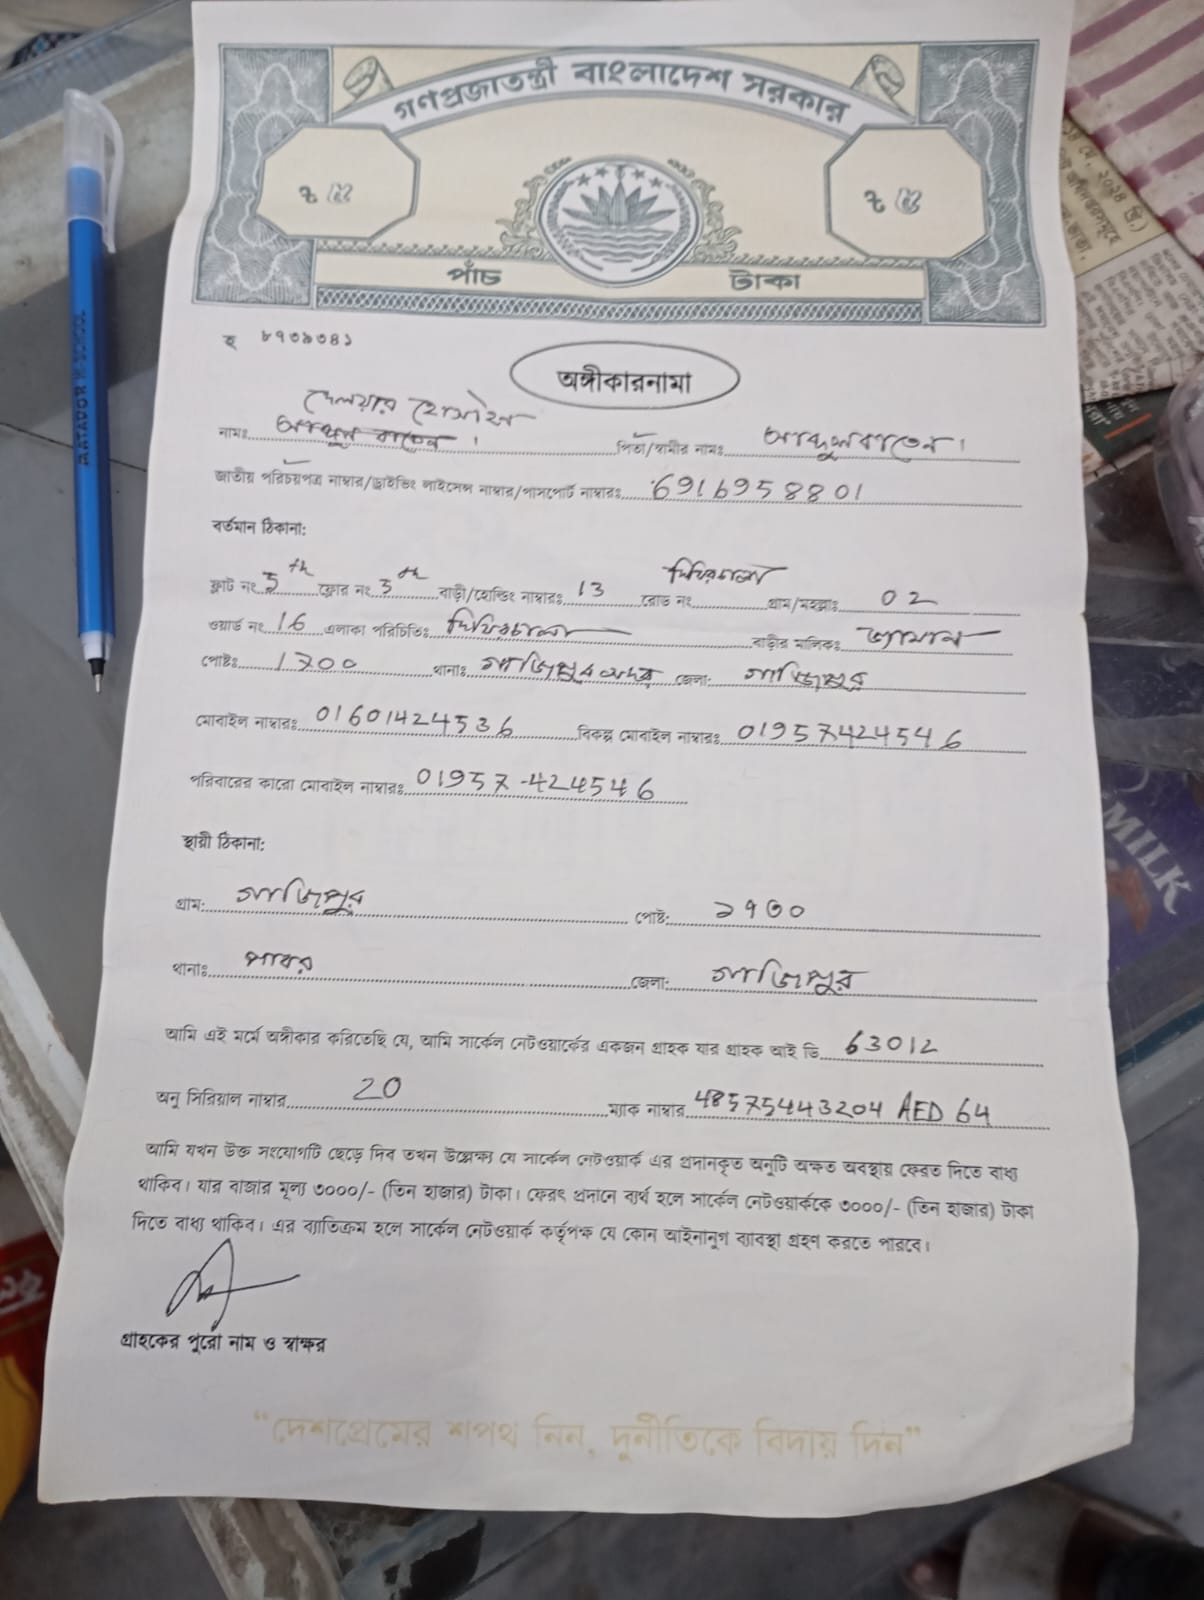 গণপ্রজাতন্ত্রী বাংলাদেশ সরকার
৳ ৫ ৳ ৫
পাঁচ টাকা
হ ৮৭০৯৩৪১
অঙ্গীকারনামা
দেলয়ার হোসাইন
নামঃ আব্দুল বাতেন। পিতা/স্বামীর নামঃ আব্দুল বাতেন।
জাতীয় পরিচয়পত্র নাম্বার/ড্রাইভিং লাইসেন্স নাম্বার/পাসপোর্ট নাম্বারঃ 6916958801
বর্তমান ঠিকানা:
ফ্লাট নং 5th ফ্লোর নং 5th বাড়ী/হোল্ডিং নাম্বারঃ 13 রোড নং দিঘিরচালা গ্রাম/মহল্লাঃ 02
ওয়ার্ড নং 16 এলাকা পরিচিতিঃ দিঘিরচালা বাড়ীর মালিকঃ
পোষ্টঃ 1700 থানাঃ গাজিপুর সদর জেলা: গাজিপুর
মোবাইল নাম্বারঃ 01601424536 বিকল্প মোবাইল নাম্বারঃ 01957424546
পরিবারের কারো মোবাইল নাম্বারঃ 01957-424546
স্থায়ী ঠিকানা:
গ্রাম: গাজিপুর পোষ্ট: ১৭৩০
থানাঃ জেলা: গাজিপুর
আমি এই মর্মে অঙ্গীকার করিতেছি যে, আমি সার্কেল নেটওয়ার্কের একজন গ্রাহক যার গ্রাহক আই ডি 63012
অনু সিরিয়াল নাম্বার 20 ম্যাক নাম্বার 48575443204 AED 64
আমি যখন উক্ত সংযোগটি ছেড়ে দিব তখন উল্লেক্ষ্য যে সার্কেল নেটওয়ার্ক এর প্রদানকৃত অনুটি অক্ষত অবস্থায় ফেরত দিতে বাধ্য
থাকিব। যার বাজার মূল্য ৩০০০/- (তিন হাজার) টাকা। ফেরৎ প্রদানে ব্যর্থ হলে সার্কেল নেটওয়ার্ককে ৩০০০/- (তিন হাজার) টাকা
দিতে বাধ্য থাকিব। এর ব্যাতিক্রম হলে সার্কেল নেটওয়ার্ক কর্তৃপক্ষ যে কোন আইনানুগ ব্যাবস্থা গ্রহণ করতে পারবে।
গ্রাহকের পুরো নাম ও স্বাক্ষর
“দেশপ্রেমের শপথ নিন, দুর্নীতিকে বিদায় দিন”
MATADOR HI-SCHOOL
MILK